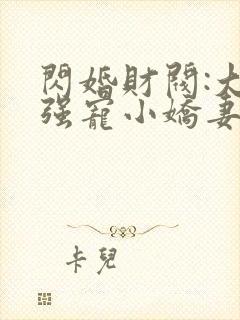 閃婚財閥:大
强寵小嬌妻
卡兒